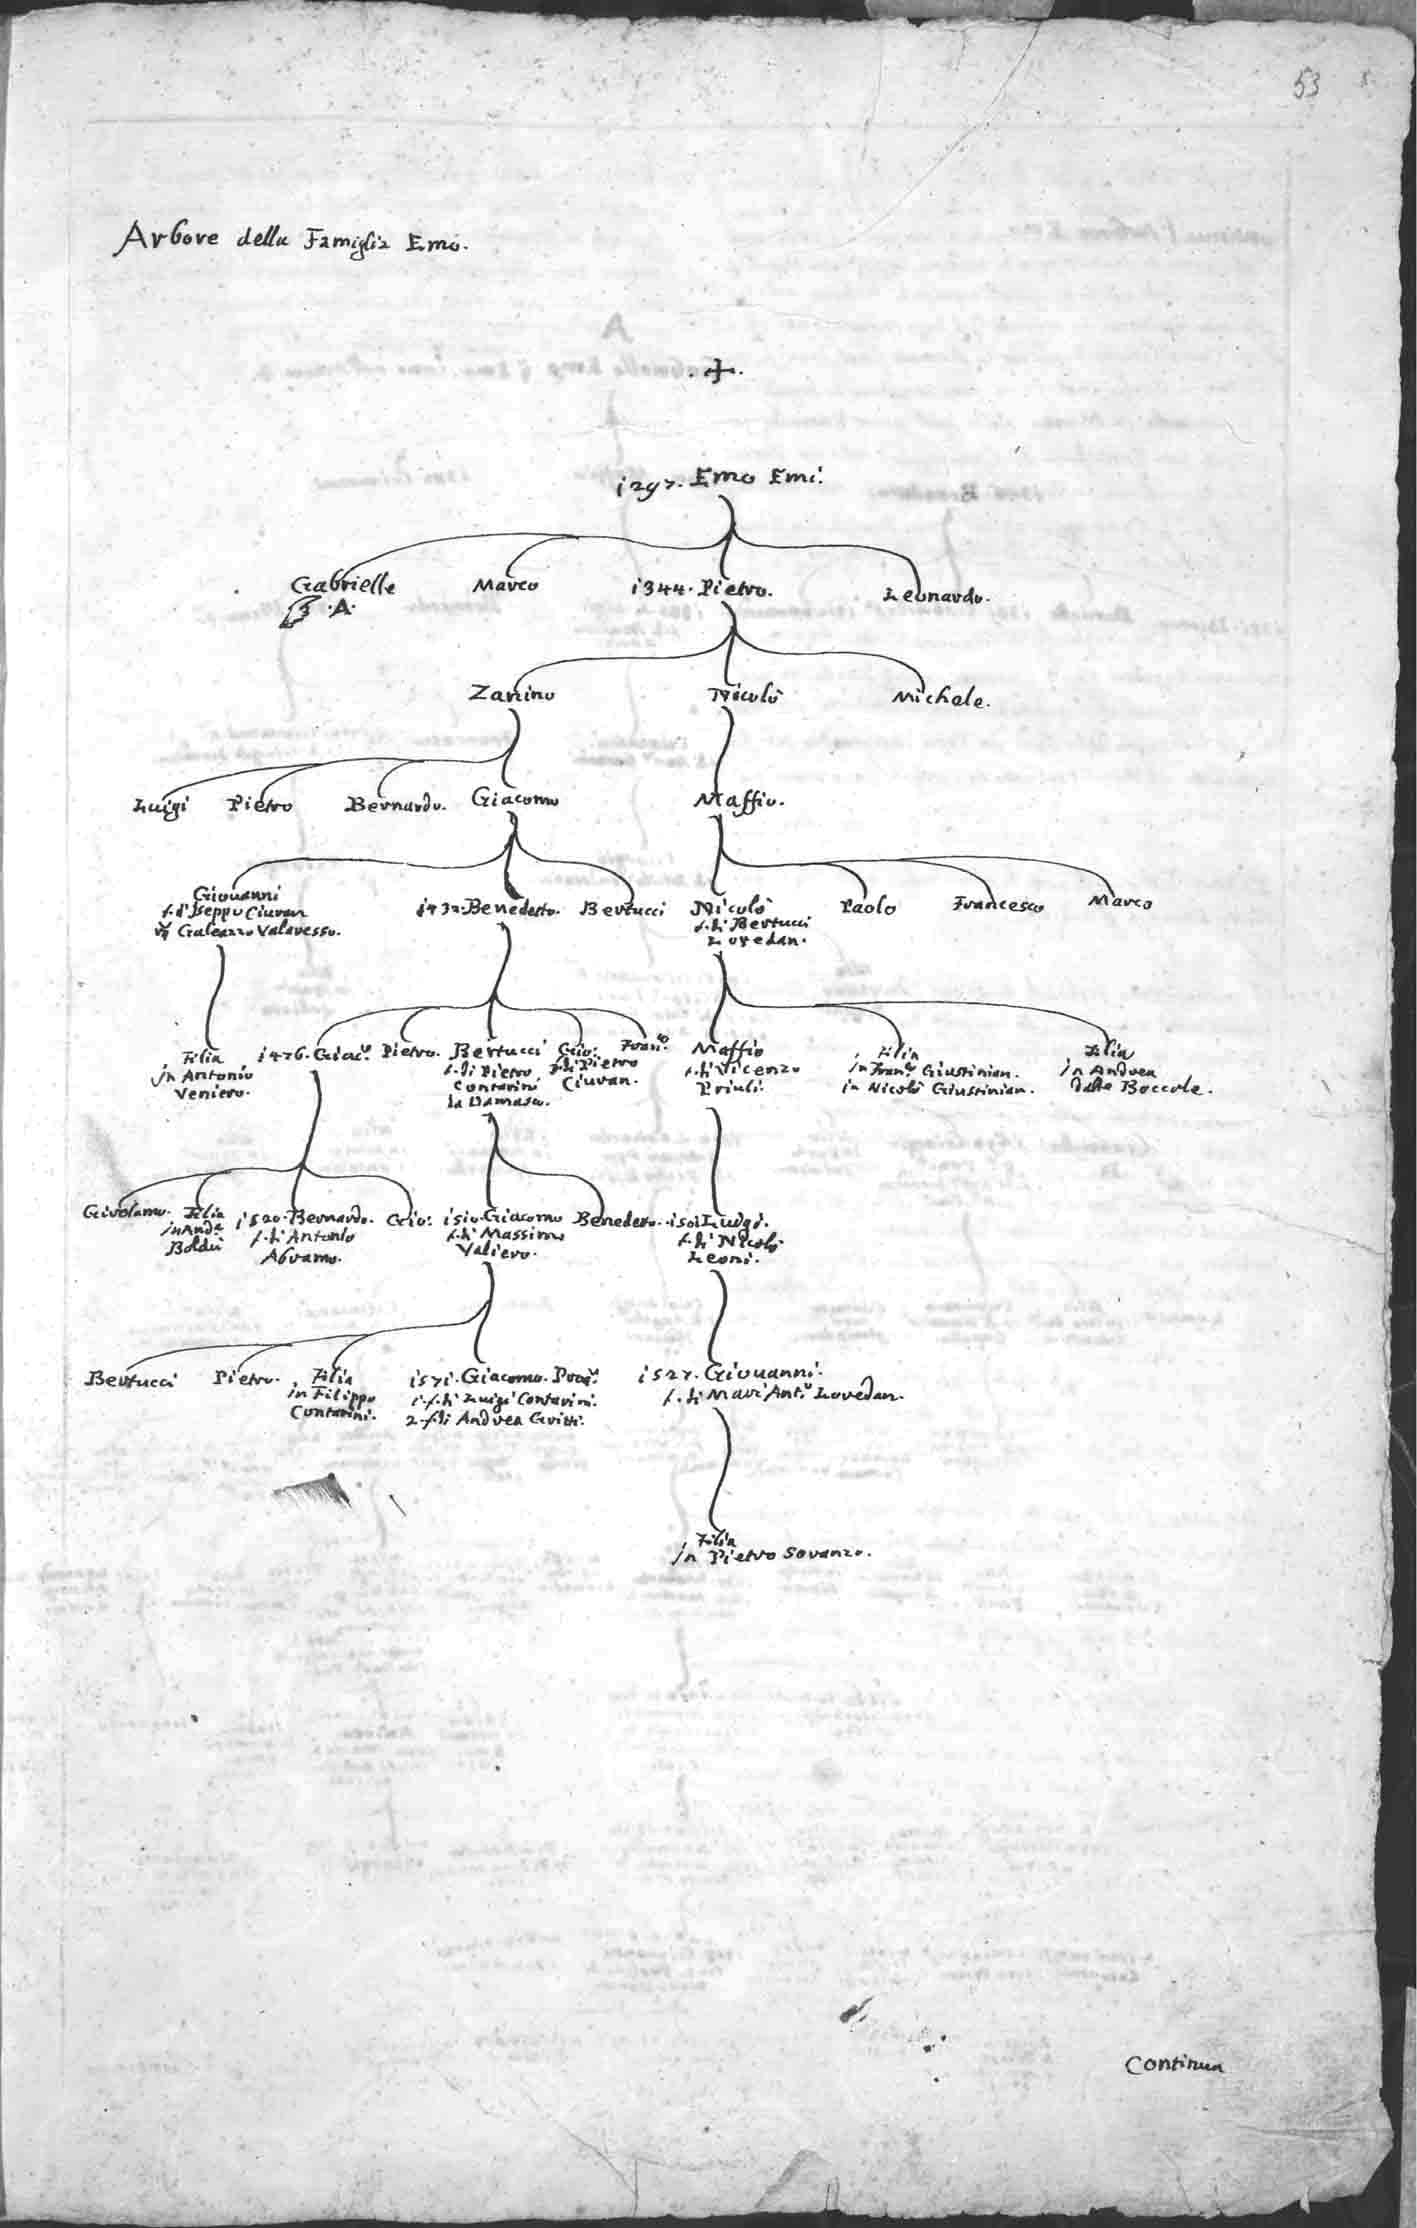 53
Arbore della Famiglia Emo.
.+.
1297. Emo Emi.
Gabrielle Marco 1344. Pietro. Leonardo.
.A.
Zanino Nicolò Michele.
Luigi Pietro Bernardo. Giacomo Maffio.
Giouanni
f. d'Iseppo Ciuran
Galeazzo Valaresso.
1432. Benedetto. Bertucci
Nicolò
f. di Bertucci
Loredan.
Paolo Francesco Marco
Filia
in Antonio
Veniero.
1476. Giac.º Pietro.
Bertucci
f. di Pietro
Contarini
da Damasco.
Gio:
f. di Pietro
Ciuran.
Fran.co
Maffio
f. di Vicenzo
Priuli.
Filia
in Fran.co Giustinian.
in Nicolò Giustinian.
Filia
in Andrea
dalle Boccole.
Girolamo.
Filia
in And.a
Boldù
1520. Bernardo.
f. di Antonio
Abramo.
Gio:
1510. Giacomo
f. di Massimo
Valiero.
Benedetto.
1501 Luigi.
f. di Nicolò
Leoni.
Bertucci Pietro.
Filia
in Filippo
Contarini.
1571. Giacomo. Proc.r
1. f. di Luigi Contarini.
2. f. di Andrea Gritti.
1527. Giouanni.
f. di Marc'Ant.º Loredan.
Filia
in Pietro Soranzo.
Continua